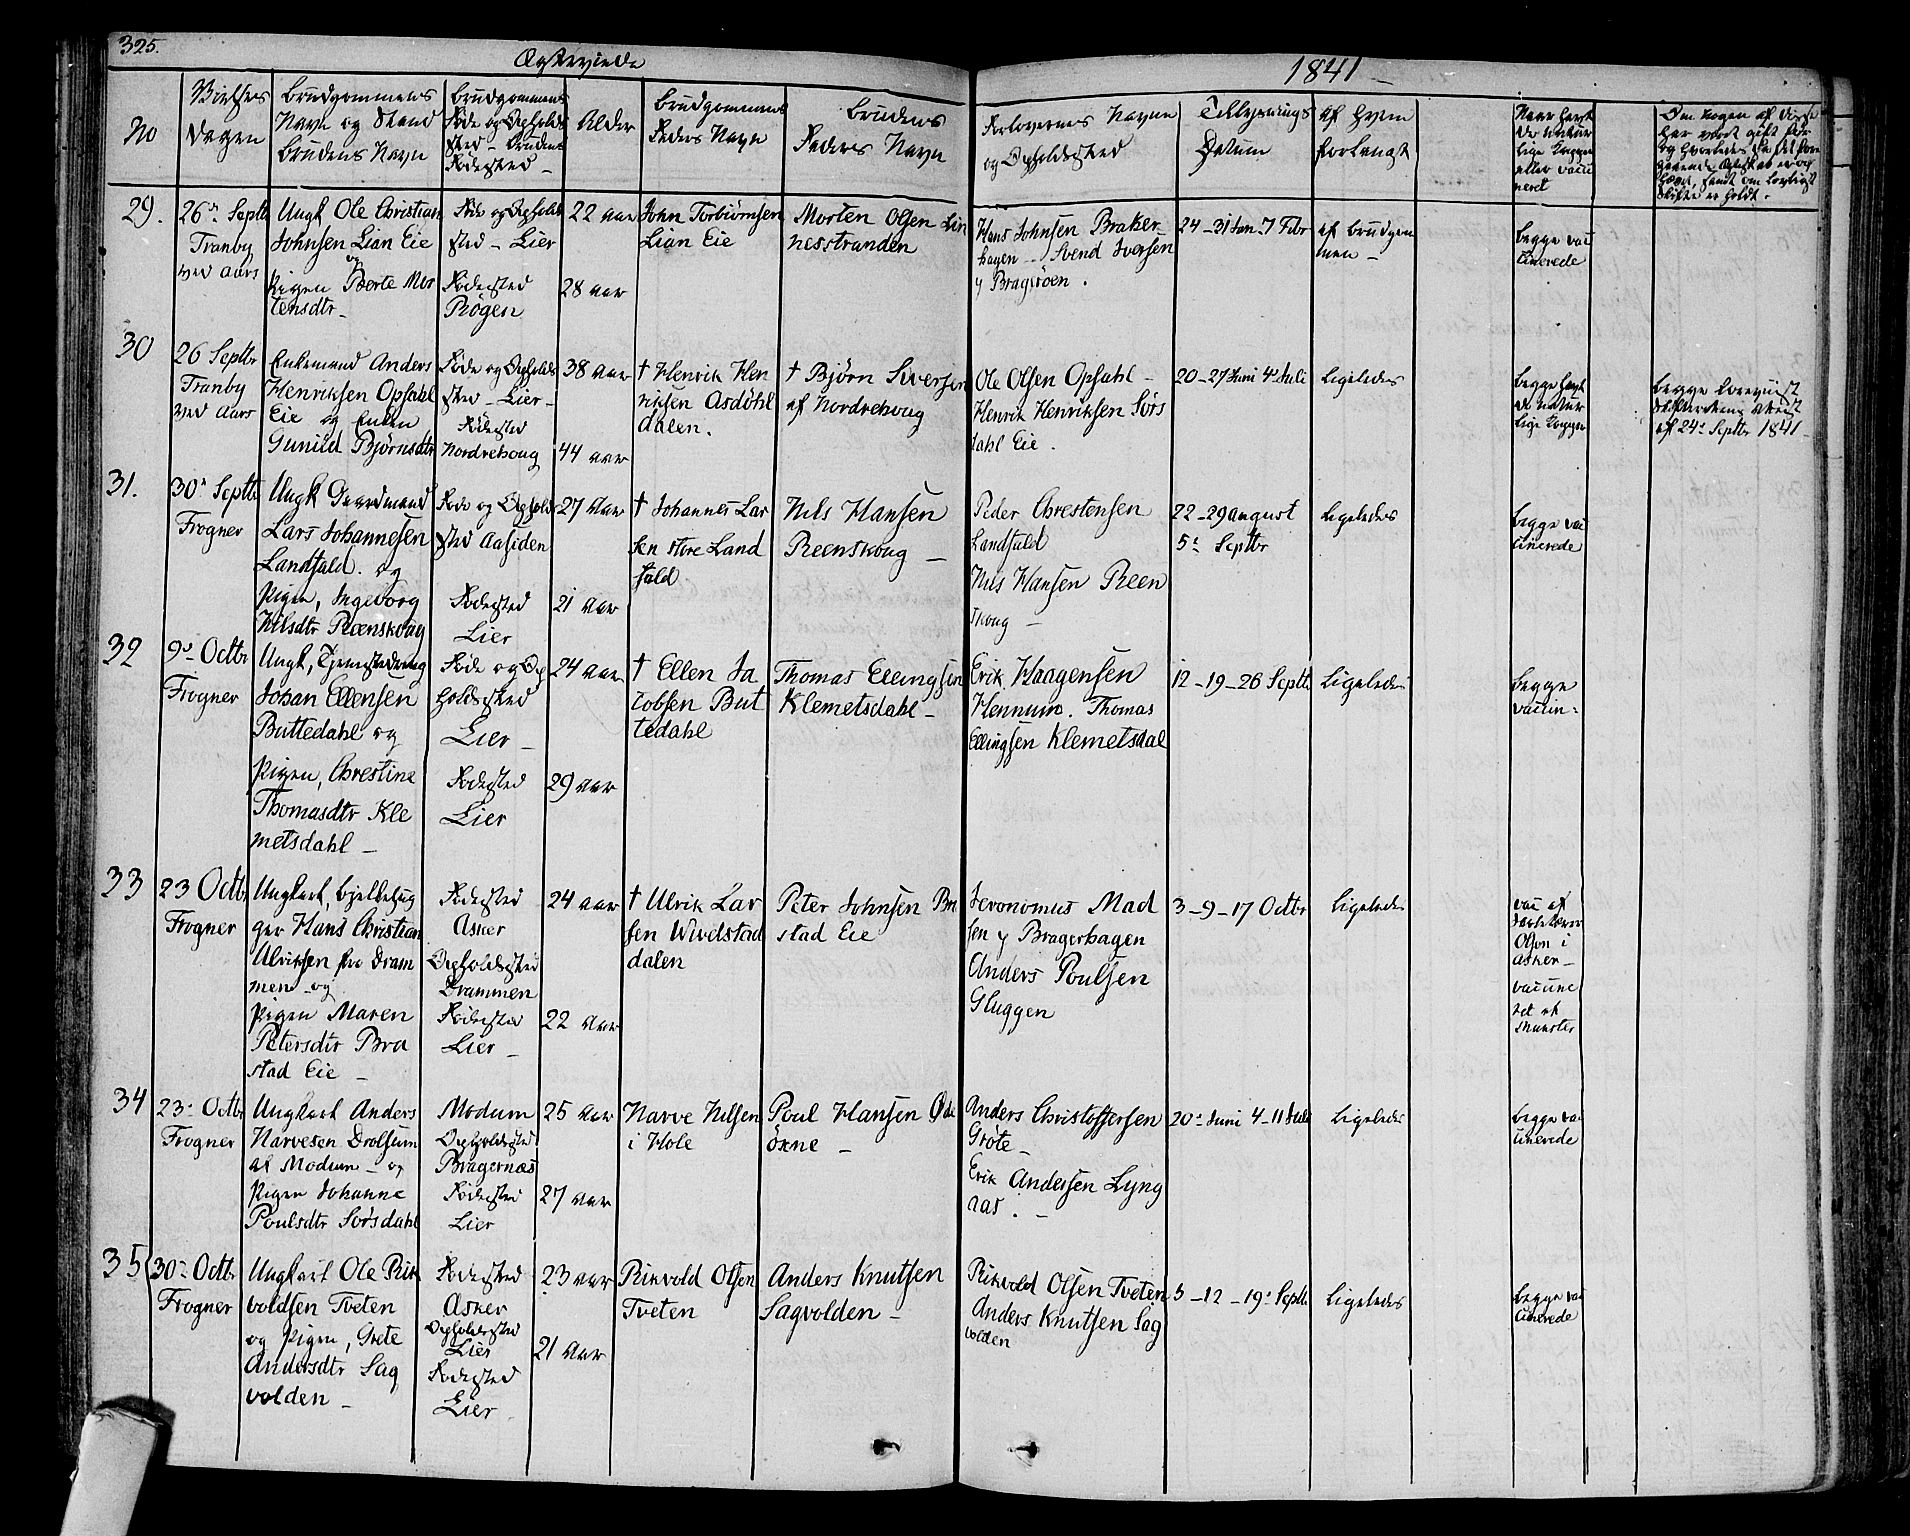 325.
Ægteviede
1841 –
No
Vielses
Dagen
Brudgommens
Navn og Stand
Brudens Navn
Brudgommens
Føde og Opholds
sted – Brudens
Fødested –
Alder
Brudgommens
Faders Navn
Brudens
Faders Navn
Forlovernes Navne
og Opholdssted
Tillysnings
Datum
Af Hvem
forlangt
Naar havt
de natur
lige Kopper
eller vacci
neret
Om nogen af disse
har været gift før
29.
26de Septbr
Tranby
ved Aars
Ungk Ole Christian
Johnsen Lian Eie
og
Pigen Berte Mor
tensdtr –
Føde og Ophold
sted – Lier
Fødested
Røgen
22 aar
28 aar
John Torbiørnsen
Lian Eie
Morten Olsen Lin
nesstranden
Hans Johnsen Braker
hagen – Svend Iversen
y Bragerøen .
24 – 31 Jan – 7 Febr
af Brudgom
men –
begge vac
cinerede
30
26 Septbr
Tranby
ved Aars
Enkemand Anders
Henriksen Opsahl
Eie og Enken
Gunild Bjørnsdtr
Føde og Opholds
sted – Lier –
Fødested
Nordrehoug
38 aar
44 aar
† Henrik Hen
riksen Asdøhl
dalen.
† Bjørn Siversen
af Nordrehoug
Ole Olsen Opsahl –
Henrik Henriksen Sørs
dahl Eie .
20 – 27 Juni 4de Juli
Ligeledes
begge havt
de natur
lige Kopper
begge beviist
Skifteretens Attest
af 24de Septbr 1841
31.
30te Septbr
Frogner
Ungk Gaardmand
Lars Johannesen
Landfald . og
Pigen, Ingeborg
Nilsdtr Reenskoug
Føde og Ophold
sted Aasiden
Fødested
Lier
27 Aar
21 aar
† Johannes Lar
sen store Land
fald
Nils Hansen
Reenskoug –
Peder Chrestensen
Landfald
Nils Hansen Reen
skoug –
22 – 29 august
5te Septbr
Ligeledes
begge vac
cinerede
32
9de Octbr
Frogner
Ungk, Tjenestedreng
Johan Ellensen
Buttedahl og
Pigen, Chrestine
Thomasdtr Kle
metsdahl –
Føde og Op
holdssted
Lier –
Fødested
Lier
24 aar
29 aar
† Ellen Ja
cobsen But
tedahl
Thomas Ellingsen
Klemetsdahl –
Erik Haagensen
Hennum . Thomas
Ellingsen Klemetsdal
12 – 19 – 26 Septbr
Ligeledes
begge
vaccin:
33
23 Octbr
Frogner
Ungkarl, Bjelkehug
ger Hans Christian
Ulriksen fra Dram
men – og
Pigen Maren
Petersdtr Bra
stad Eie –
Fødested
Asker
Opholdssted
Drammen
Fødested
Lier –
24 aar
22 Aar
† Ulrik Lar
sen Wivelstad
dalen
Peter Johnsen Bra
stad Eie
Jeronomus Mad
sen y Bragerhagen
Anders Poulsen
Gluggen
3 – 9 – 17 Octbr
Ligeledes
vac af
Olsen i
Asker –
vaccine
ret af
Munster
34
23de Octbr
Frogner
Ungkarl Anders
Narvesen Drolsum
af Modum – og
Pigen Johanne
Poulsdtr Sørsdahl
Modum
Opholdssted
Bragernæs
Fødested
Lier
25 Aar
27 aar
Narve Nilsen
i Hole
Poul Hansen Øde
øxne –
Anders Christoffersen
Grøte –
Erik Andersen Lyng
aas . –
20de Juni 4 – 11 Juli
Ligeledes
begge vac
cinerede
35
30te Octbr
Frogner
Ungkarl Ole Rik
voldsen Tveten
og Pigen, Grete
Andersdtr Sag
volden –
Fødested
Asker
Opholdssted
Lier
Fødested
Lier
23 aar
21 Aar
Rikvold Olsen
Tveten
Anders Knutsen
Sagvolden –
Rikvold Olsen Tveten
Anders Knutsen Sag
volden
5 – 12 – 19de Septbr
Ligeledes
begge vac
cinerede